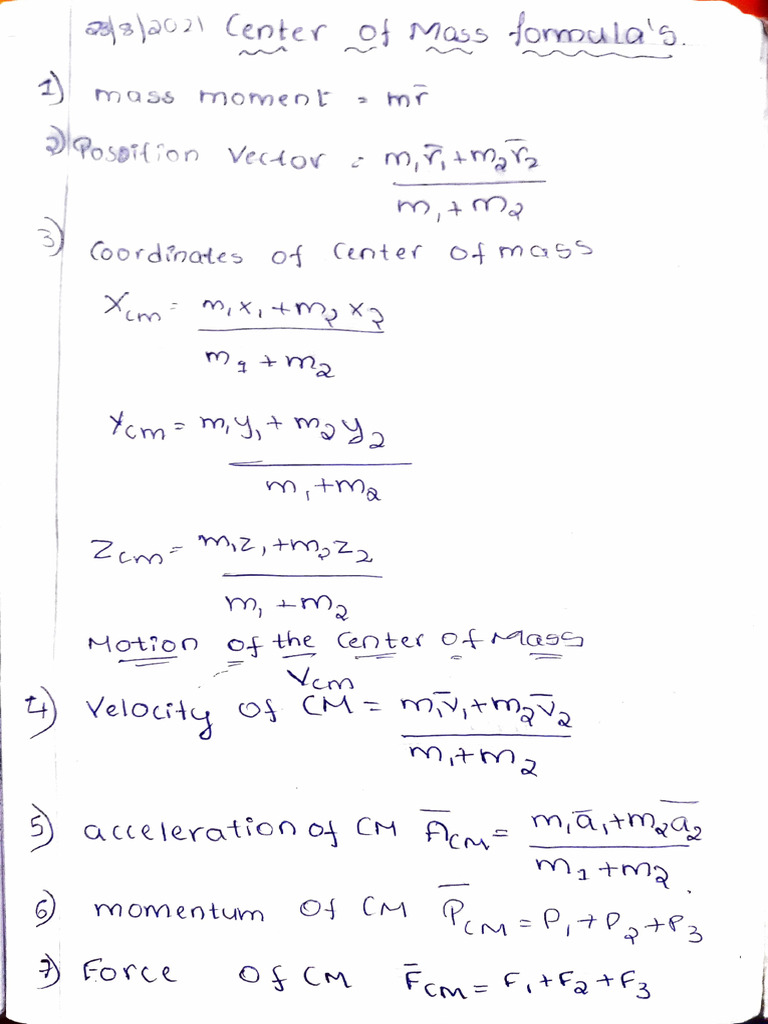 23/8/2021 Center of Mass formula's.
1) mass moment = mr̄
2) Possition Vector = m₁r̄₁+m₂r̄₂
m₁+m₂
3) Coordinates of Center of mass
Xcm = m₁x₁+m₂x₂
m₁+m₂
Ycm = m₁y₁+m₂y₂
m₁+m₂
Zcm = m₁z₁+m₂z₂
m₁+m₂
Motion of the Center of Mass
Vcm
4) Velocity of CM = m₁v̄₁+m₂v̄₂
m₁+m₂
5) acceleration of CM ĀCM = m₁ā₁+m₂ā₂
m₁+m₂.
6) momentum of CM P̄CM = P₁+P₂+P₃
7) Force of CM F̄CM = F₁+F₂+F₃